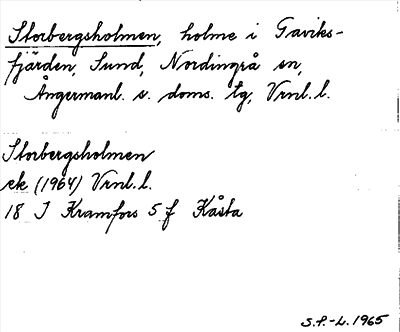 Storbergsholmen, holme i Gaviks-
fjärden, Sund, Nordingrå sn,
Ångermanl. s. doms. tg, Vrnl. l.
Storbergsholmen
ek (1964) Vrnl. l.
18 I Kramfors 5 f Kåsta
S.F.-L. 1965